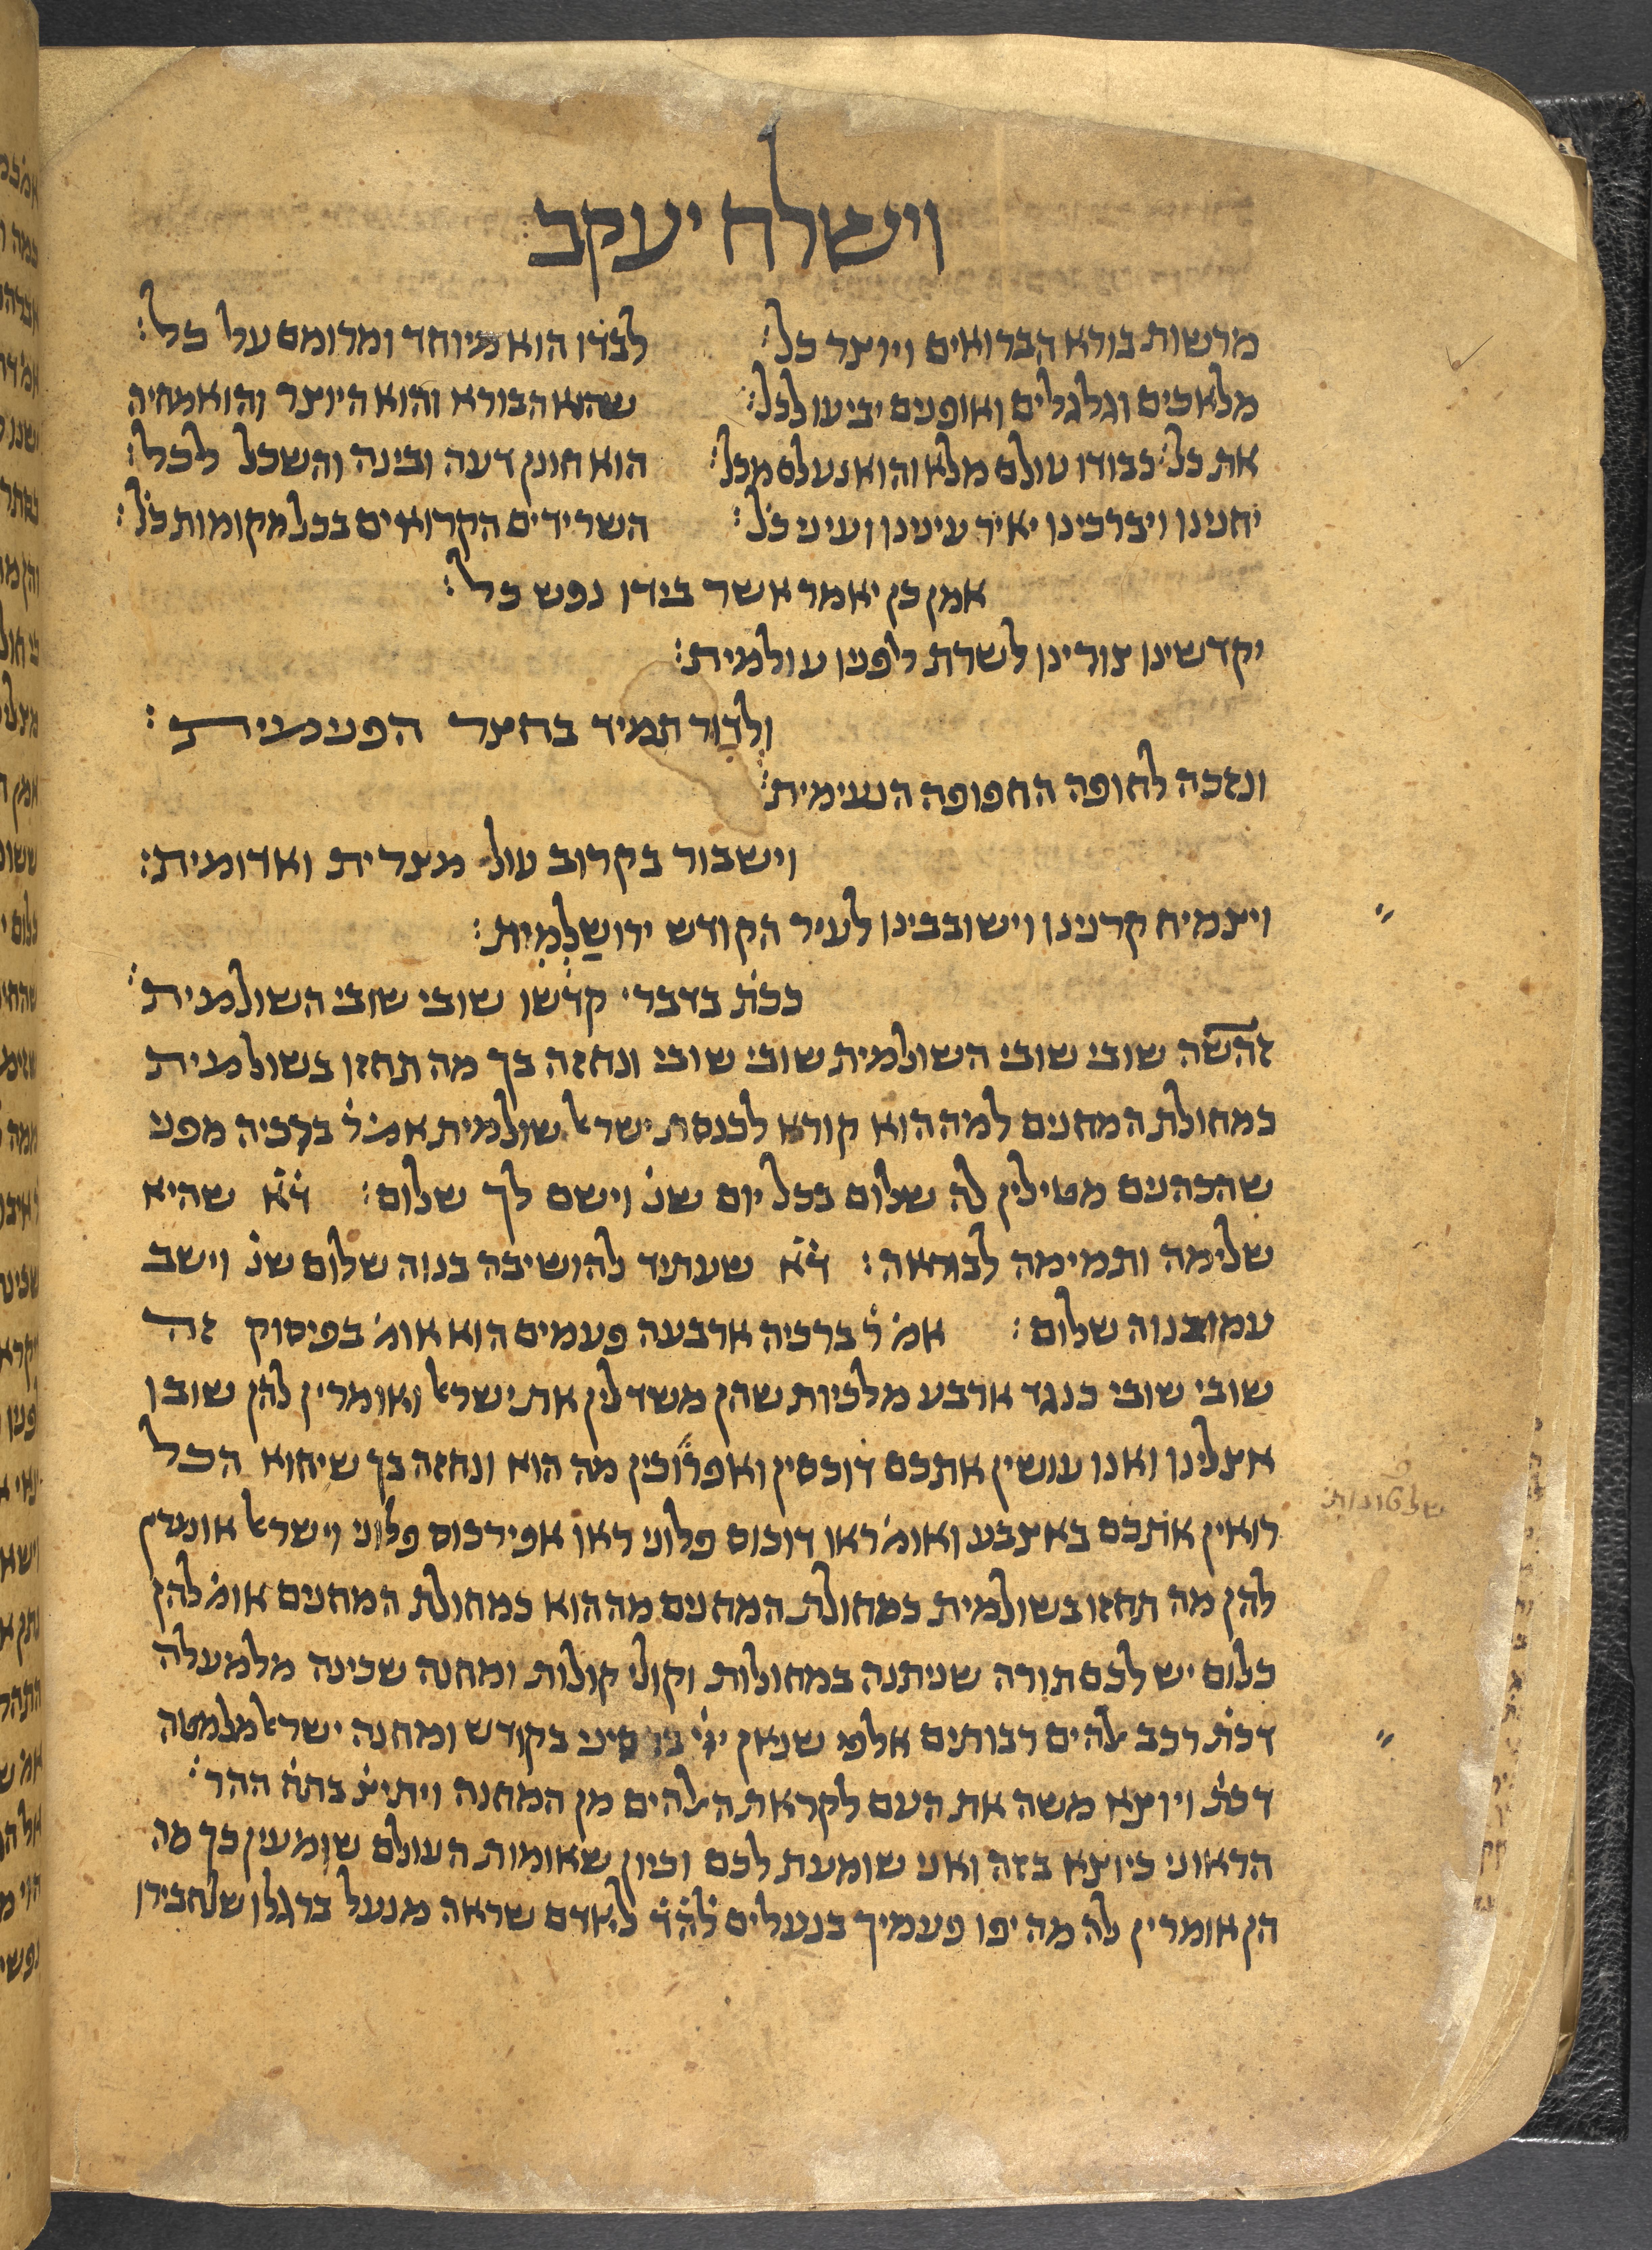 וישלח יעקב:
מרשות בורא הברואים ויוצר כל: לבדו הוא מיוחד ומרומם על כל:
מלאכים וגלגלים ואופנים יביעו לכל: שהוא הבורא והוא היוצר והוא מחיה
את כל: כבודו עולם מלא והוא נעלם מכל: הוא חונן דעה ובינה והשכל לכל:
יחנינו ויברכינו יאיר עינינו ועיני כל: השרידים הקרואים בכל מקומות כל:
אמן כן יאמר אשר בידו נפש כל:
יקדשינו צורינו לשרת לפניו עולמית:
ולדור תמיד בחצר הפנימית:
ונזכה לחופה החפופה הנעימית:
וישבור בקרוב עול מצרית ואדומית:
ויצמיח קרנינו וישובבינו לעיר הקודש ירושלמית:
ככת בדברי קדשו שובי שובי השולמית:
זהשה שובי שובי השולמית שובי שובי ונחזה בך מה תחזו בשולמית
כמחולת המחנים למה הוא קורא לכנסת ישר׳ שולמית אמ׳ ר׳ ברכיה מפני
שהכהנים מטילין לה שלום בכל יום שנ׳ וישם לך שלום: ד״א שהיא
שלימה ותמימה לבוראה: ד״א שעתיד להושיבה בנוה שלום שנ׳ וישב
עמו בנוה שלום: אמ׳ ר׳ ברכיה ארבעה פעמים הוא אומ׳ בפיסוק זה
שובי שובי כנגד ארבע מלכיות שהן משדלין את ישר׳ ואומרין להן שובו
אצלינו ואנו עושין אתכם דוכסין ואפרוכין מה הוא ונחזה בך שיהוא הכל
שלטונות:
רואין אתכם באצבע ואומ׳ ראו דוכוס פלוני ראו אפירכוס פלוני וישר׳ אומרין
להן מה תחזו בשולמית כמחולת המחנים מה הוא כמחולת המחנים אומ׳ להן
כלום יש לכם תורה שניתנה במחולות וקולי קולות ומחנה שכינה מלמעלה
דכת׳ רכב אלהים רבותים אלפי שנאן יי׳ בם סיני בקודש ומחנה ישר׳ מלמטה
דכת׳ ויוצא משה את העם לקראת האלהים מן המחנה ויתיצ׳ בתח׳ ההר:
הראוני כיוצא בזה ואני שומעת לכם וכיון שאומות העולם שומעין כך מה
הן אומרין לה מה יפו פעמיך בנעלים להד לאדם שראה מנעל ברגלו שלחבירו